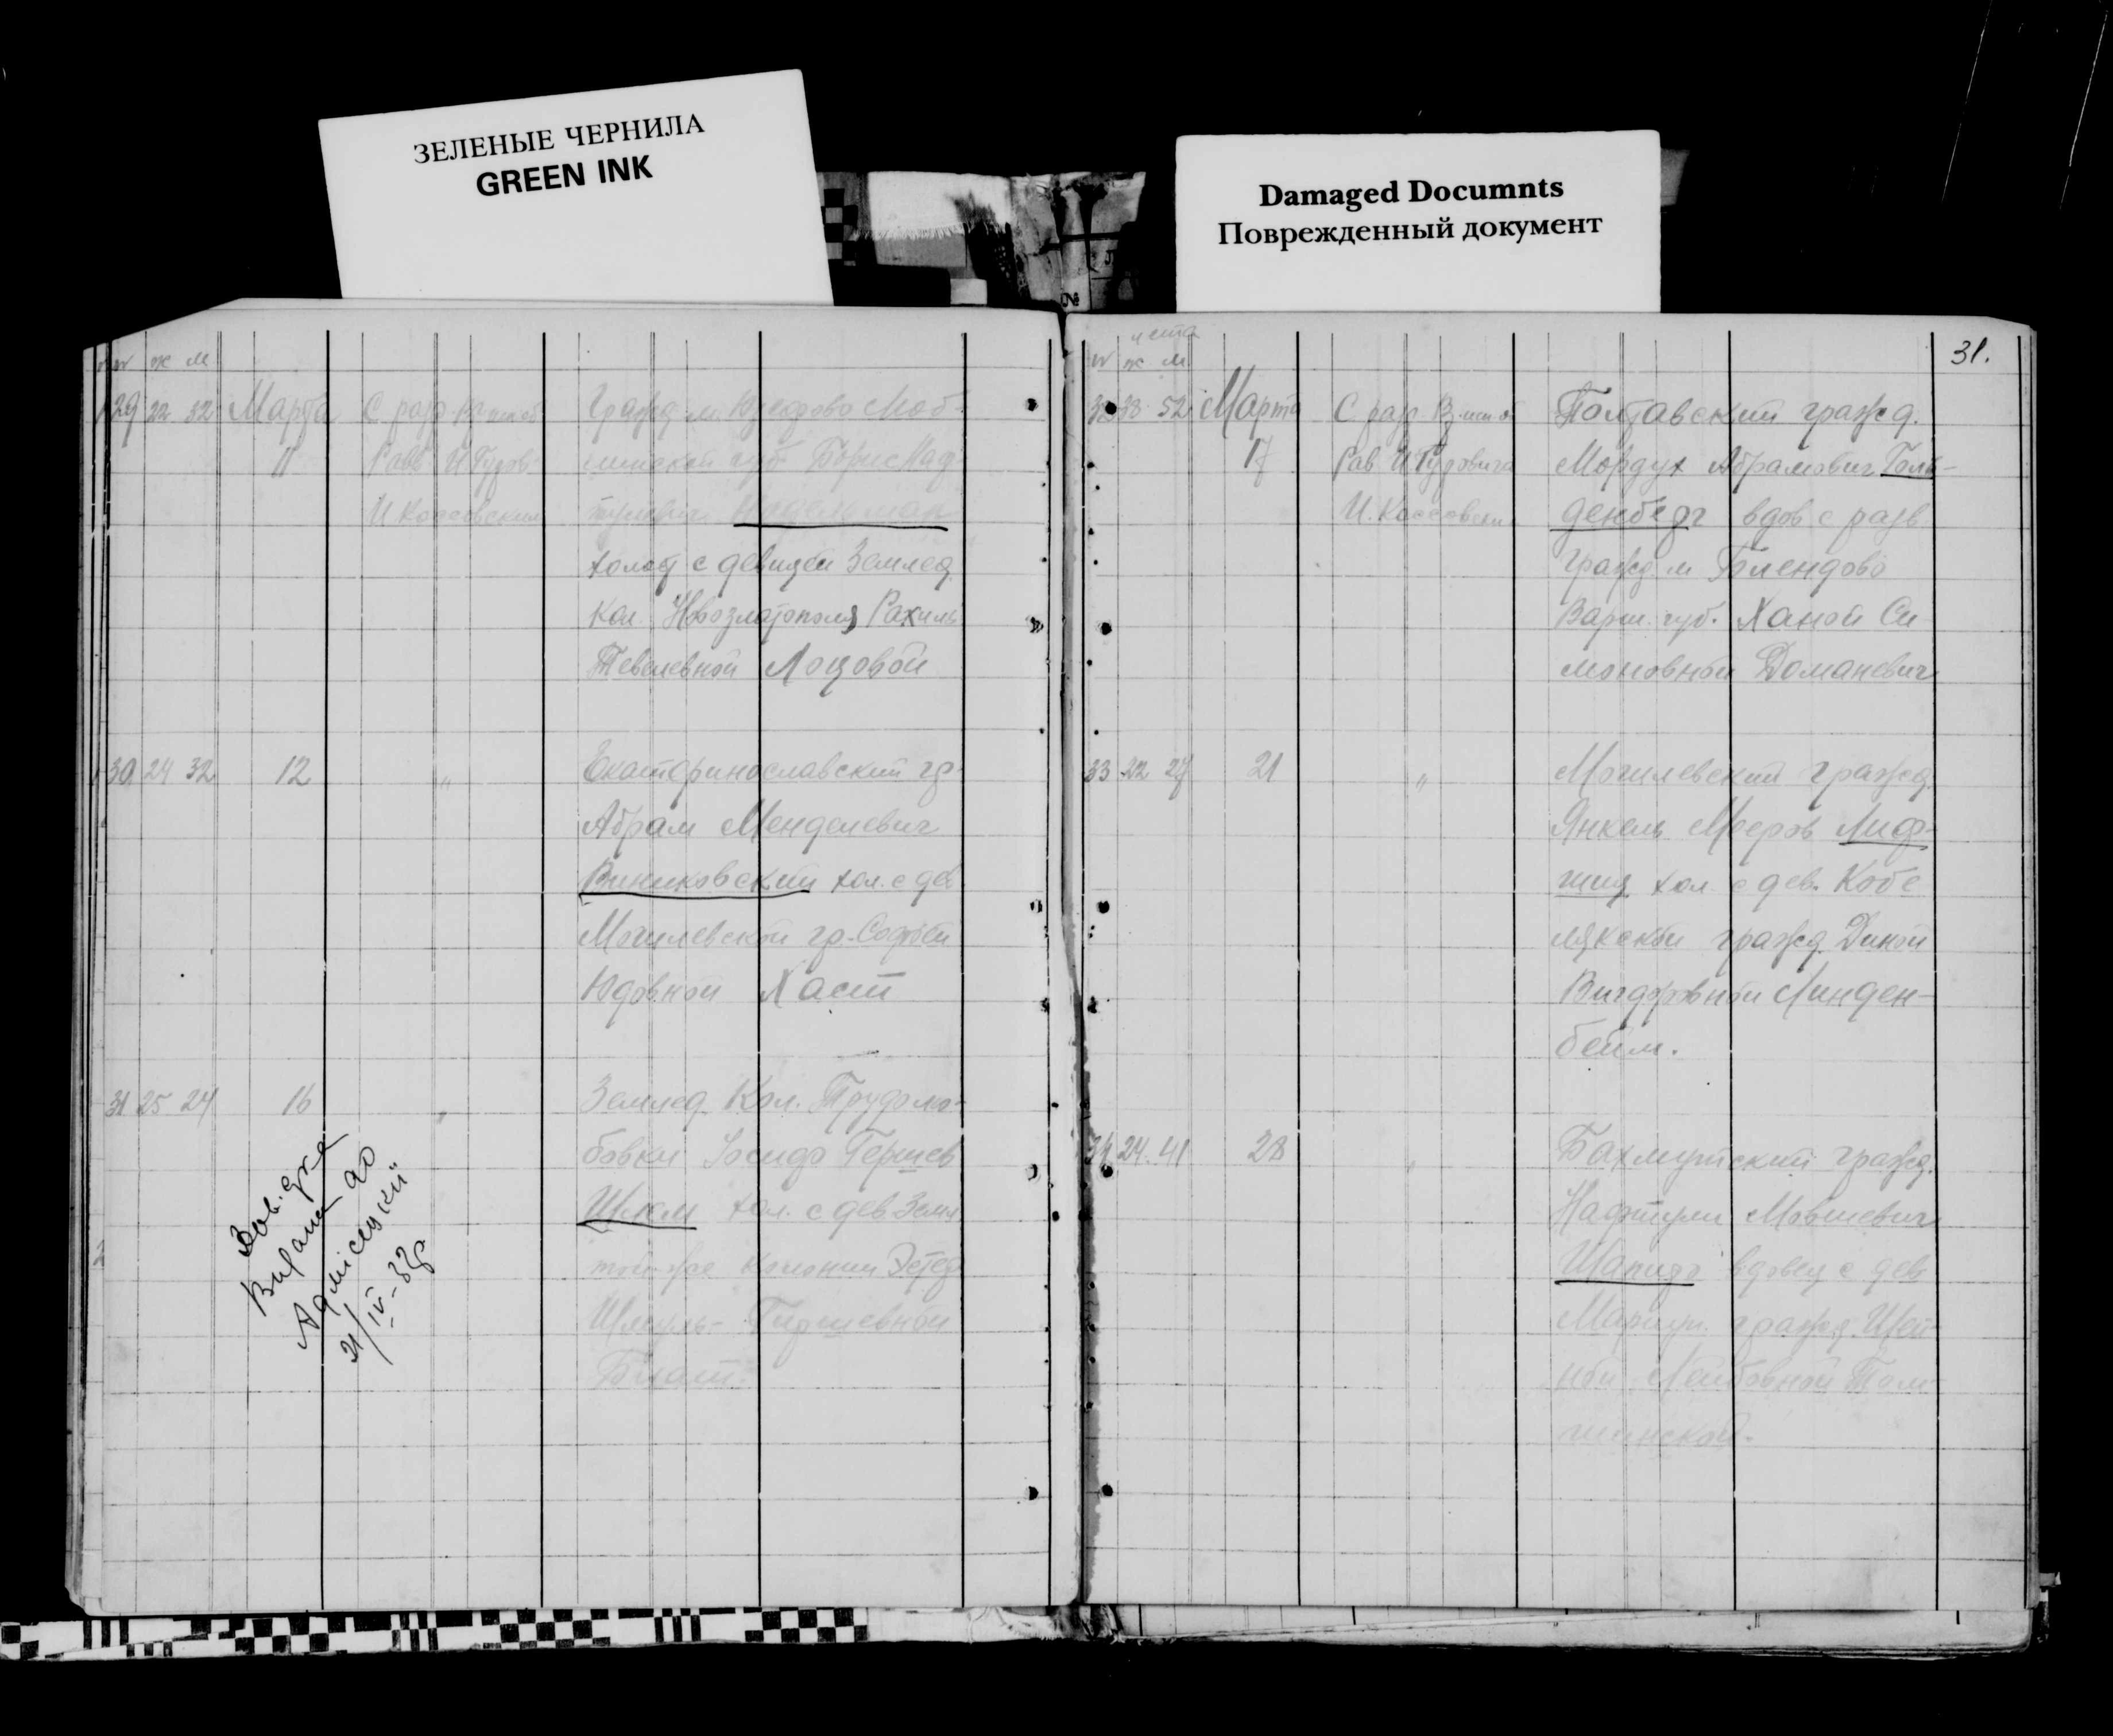 ЗЕЛЕНЫЕ ЧЕРНИЛА
GREEN INK
Damaged Documnts
Поврежденный документ
№ ж м
29 22 32 Марта С разр. Рав. И Гуров
11
И Коссовским
Гражд. м.
губ. Борис
холост с девицей Землед.
кол. Новозлатополя Рахиль
Тевелевной Лоцовой
30 24 32 12 "
Екатеринославский гр.
Абрам Менделевич
Виниковский хол. с дев
Могилевской гр. Софьей
Юдовной Хаст
31 25 24 16 "
Землед. Кол. Трудолю-
бовки Иосиф Гершев
Шлям хол. с дев. Земл
той-же колонии
Шмуль-Гиршевной
Блат.
Зав.
21/IV-32р
31.
лета
№ ж м.
32 38 52 Марта С разр.
17 Рав И Гуровича
И. Коссовским
Полтавский гражд.
Мордух Абрамович Голь-
денберг вдов с разв
гражд. м
Варш. губ. Ханой Си
моновной Доманевич
33 22 27 21 "
Могилевский гражд.
Янкель Мееров Лиф-
шиц хол. с дев. Кобе
лякской гражд. Диной
Вигдоровной Линден-
бейм.
34 24 41 28 "
Бахмутский гражд.
Нафтули Мовшевич
Шапиро вдовец с дев
Мариуп. гражд. Шей-
ной Лейбовной Толм-